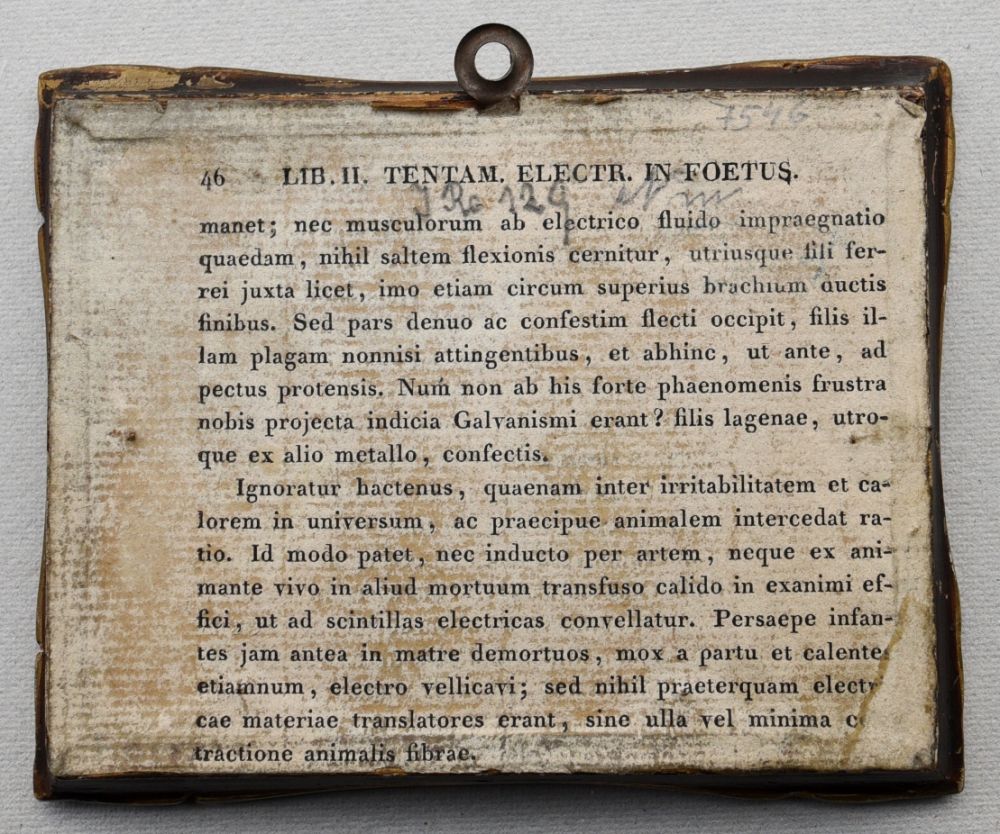 7546
46 LIB. II. TENTAM. ELECTR. IN FOETUS.
manet; nec musculorum ab electrico fluido impraegnatio
quaedam, nihil saltem flexionis cernitur, utriusque fili fer-
rei juxta licet, imo etiam circum superius brachium ductis
finibus. Sed pars denuo ac confestim flecti occipit, filis il-
lam plagam nonnisi attingentibus, et abhinc, ut ante, ad
pectus protensis. Num non ab his forte phaenomenis frustra
nobis projecta indicia Galvanismi erant? filis lagenae, utro-
que ex alio metallo, confectis.
Ignoratur hactenus, quaenam inter irritabilitatem et ca-
lorem in universum, ac praecipue animalem intercedat ra-
tio. Id modo patet, nec inducto per artem, neque ex ani-
mante vivo in aliud mortuum transfuso calido in exanimi ef-
fici, ut ad scintillas electricas convellatur. Persaepe infan-
tes jam antea in matre demortuos, mox a partu et calentes
etiamnum, electro vellicavi; sed nihil praeterquam electri
cae materiae translatores erant, sine ulla vel minima
tractione animalis fibrae.